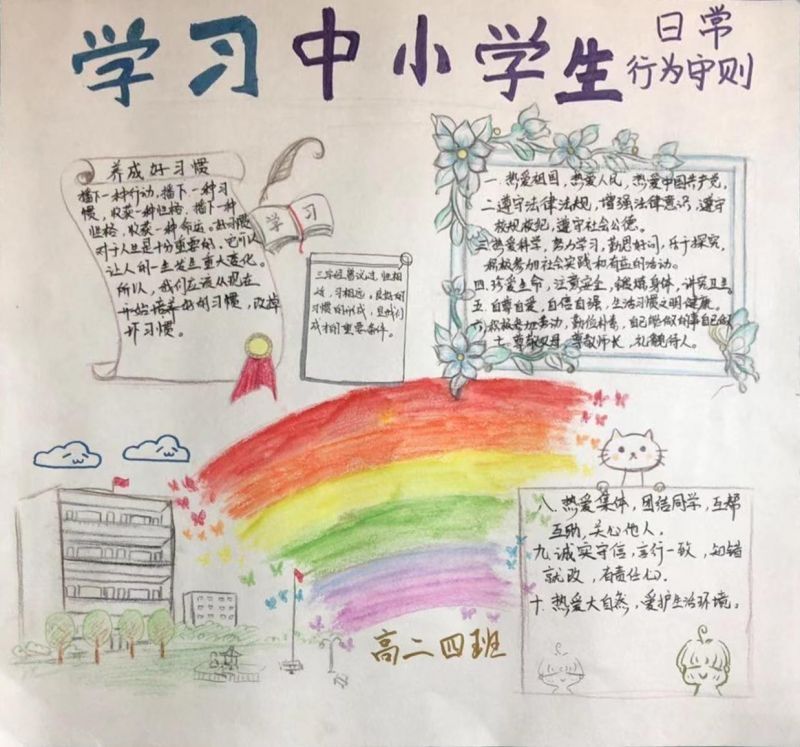 学习中小学生
日常
行为守则
养成好习惯
播下一种行动,播下一种习
惯,收获一种性格,播下一种
性格,收获一种命运。好习惯
对于人生是十分重要的,它可以
让人的一生发生重大变化。
所以,我们应该从现在
开始培养好的习惯,改掉
坏习惯。
学习
三字经曾说过,性相
近,习相远。良好的
习惯的形成,是我们
成才的重要条件。
一.热爱祖国,热爱人民,热爱中国共产党。
二遵守法律法规,增强法律意识,遵守
校规校纪,遵守社会公德。
三热爱科学,努力学习,勤思好问,乐于探究,
积极参加社会实践和有益的活动。
四.珍爱生命,注意安全,锻炼身体,讲究卫生。
五.自尊自爱,自信自强,生活习惯文明健康。
六积极参加劳动,勤俭朴素,自己能做的事自己做
七.尊敬父母,尊敬师长,礼貌待人。
八.热爱集体,团结同学,互帮
互助,关心他人。
九.诚实守信,言行一致,知错
就改,有责任心。
十.热爱大自然,爱护生活环境。
高二四班